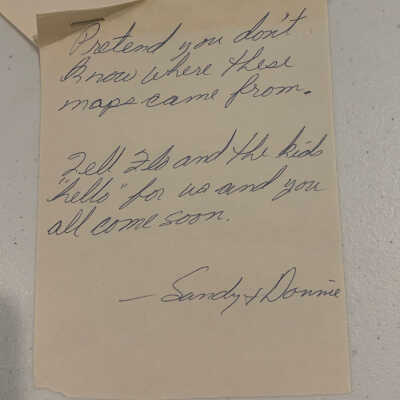 Pretend you don't
know where these
maps came from.
Tell Flo and the kids
"hello" for us and you
all come soon.
— Sandy + Donnie